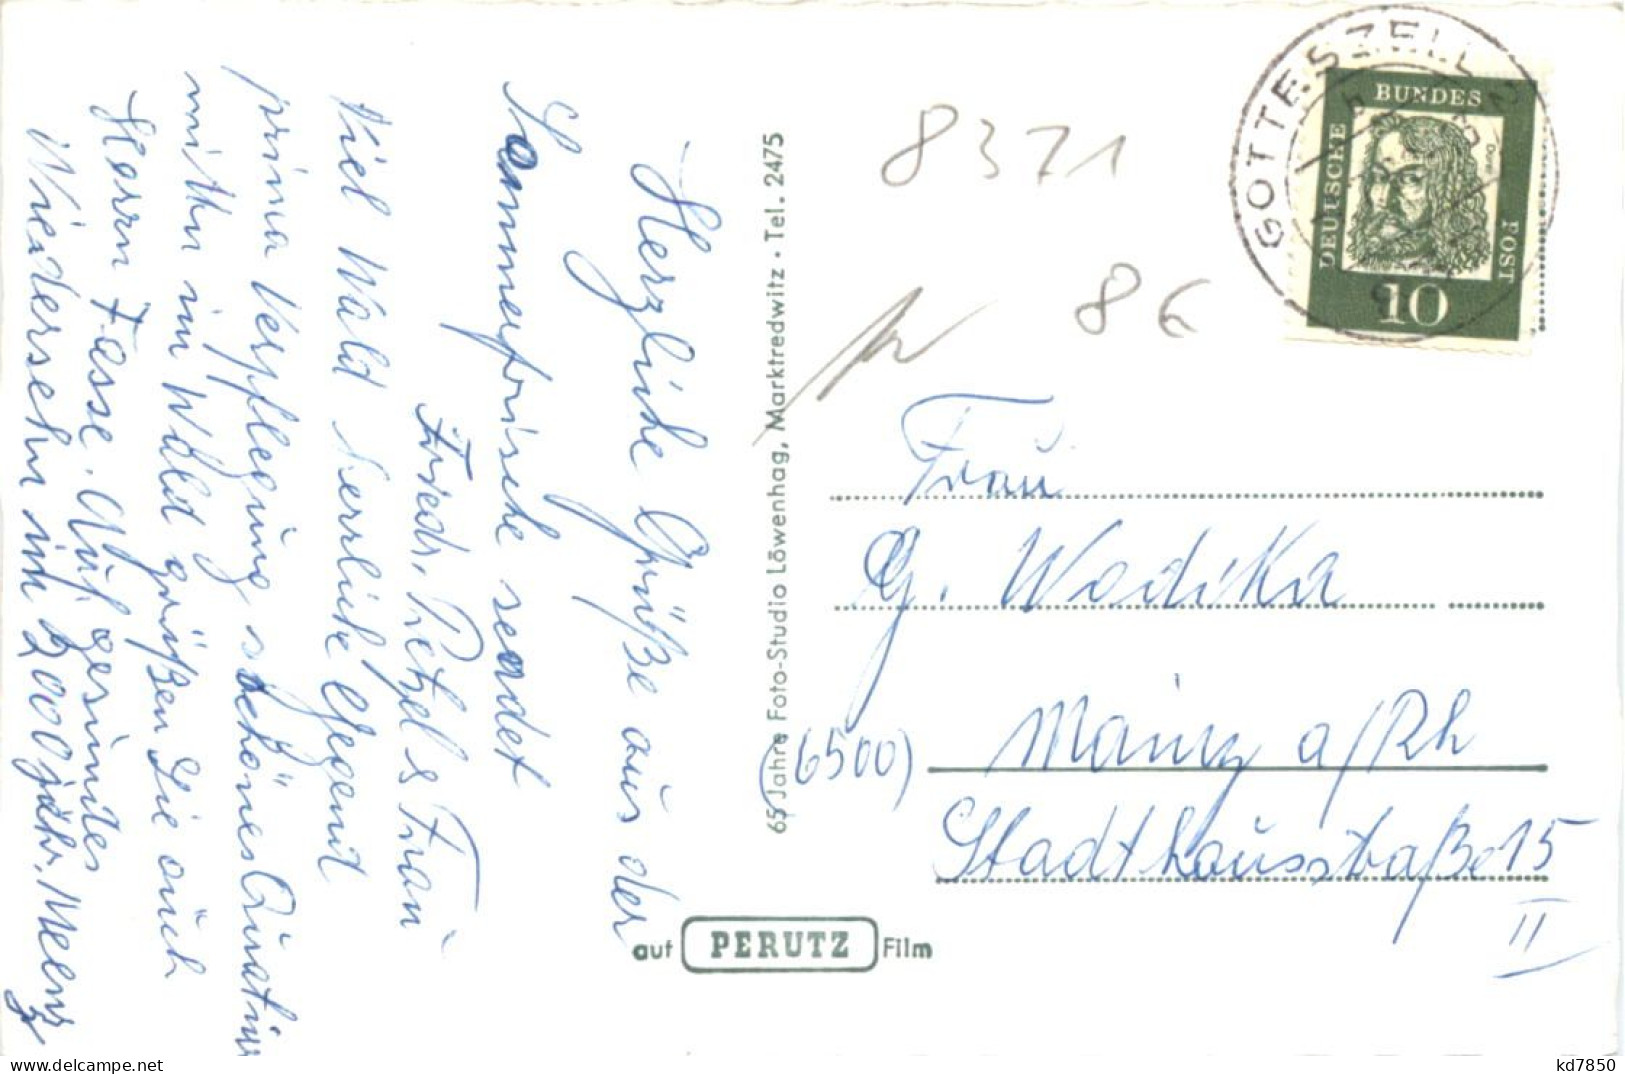 Herzliche Grüße aus der
Sommerfrische sendet
Friedr. Petzel & Frau
Viel Wald herrliche Gegend
prima Verpflegung schönes Quartier
mitten im Wald grüßen Sie auch
Herrn Fasse. Auf gesundes
Niedersehn im 2000 jähr. Meenz
65 Jahre Foto-Studio Löwenhag, Marktredwitz · Tel. 2475
auf PERUTZ Film
8371
86
GOTTESZELL
DEUTSCHE BUNDES POST
Dürer
10
Frau
G. Wodika
(6500) Mainz a/Rh
Stadthausstraße 15
II
kd7850